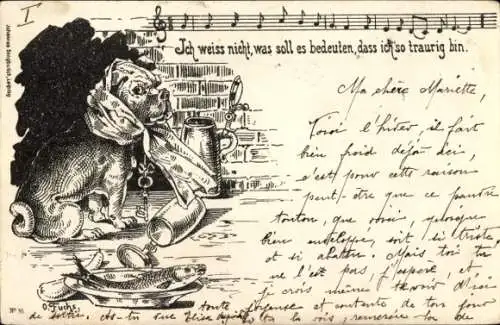 I
Ich weiss nicht, was soll es bedeuten, dass ich so traurig bin.
Ma chère Mariette,
Voici l'hiver, il fait
bien froid déjà ici,
c'est pour cette raison
peut-être que ce pauvre
toutou, que voici, quoique
bien enveloppé, soit si triste
et si abattu. Mais toi tu
ne l'es pas, j'espère, et
je crois même t'avoir d'ici
O. Fuchs.
toute joyeuse et contente de ton
de As-tu vue Elise la vois, remercie la de